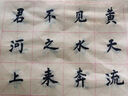 君不见黄
河之水天
上来奔流